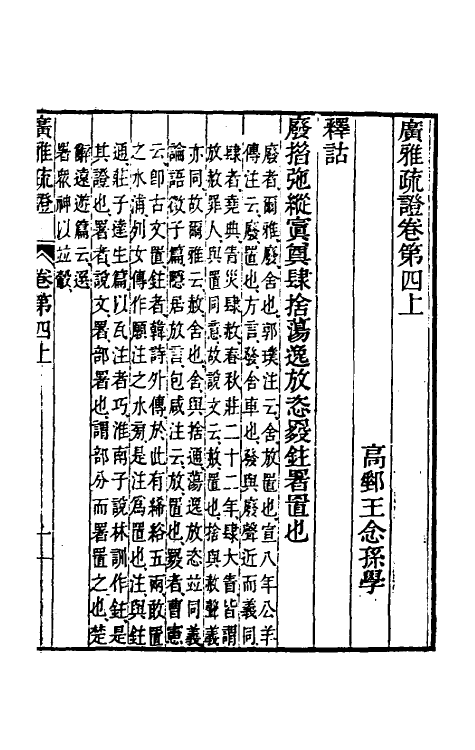 廣雅疏證卷第四上
高郵王念孫學
釋詁
廢揩弛縱窴窴肆捨蕩逸放恣叕鉒署置也
廢者爾雅廢舍也郭璞注云舍放置也宣八年公羊
傳注云廢置也方言發舍車也發與廢聲近而義同
肆者堯典眚災肆赦春秋莊二十二年肆大眚皆謂
放赦罪人與置同意故說文云赦置也捨與赦聲義
亦同故爾雅云赦舍也舍與捨通蕩逸放恣並同義
論語微子篇隱居放言包咸注云放置也叕者曹憲
云即古文置鉒者韓詩外傳於此有絺綌五兩敢置
之水浦列女傳作願注之水旁是注為置也注與鉒
通莊子達生篇以瓦注者巧淮南子說林訓作鉒是
其證也署者說文署部署也謂部分而署置之也楚
辭遠遊篇云選
署眾神以竝轂
廣雅疏證
卷第四上